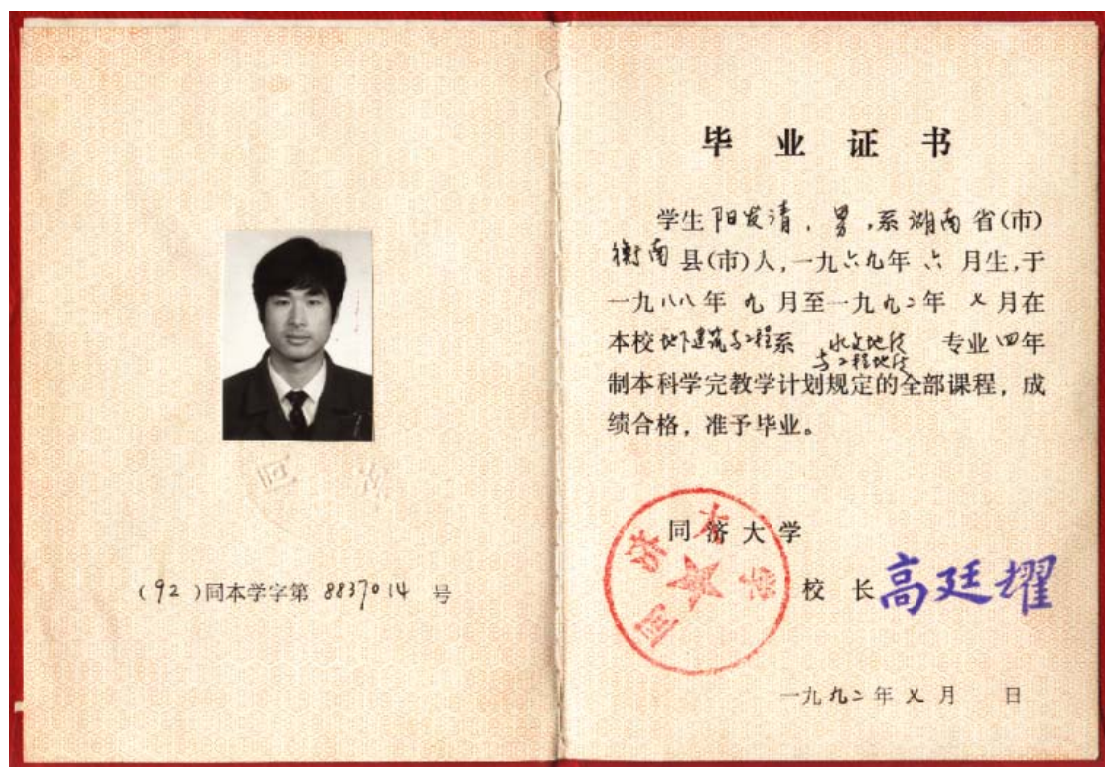 (92)同本学字第 8837014 号
毕业证书
学生阳发清，男，系湖南省(市)
衡南县(市)人，一九六九年六月生，于
一九八八年九月至一九九二年乂月在
本校地下建筑与工程系 水文地质 专业四年
与工程地质
制本科学完教学计划规定的全部课程，成
绩合格，准予毕业。
同济大学
同济大学
校长 高廷耀
一九九二年乂月 日
同济